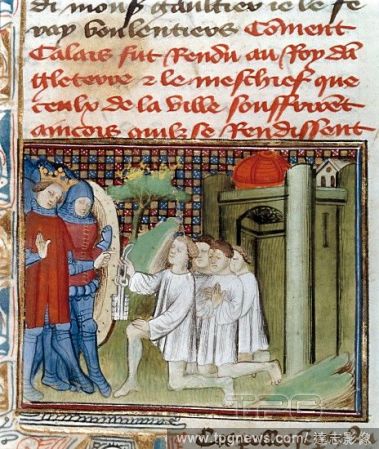 di mons gaultier ie le fe
ray voulentiers Coment
Calais fut Rendu au Roy dan
gleterre & le meschief que
ceulx de la ville souffrirent
aincois quilz se Rendissent
TPG
www.tpgnews.com / 達志影像